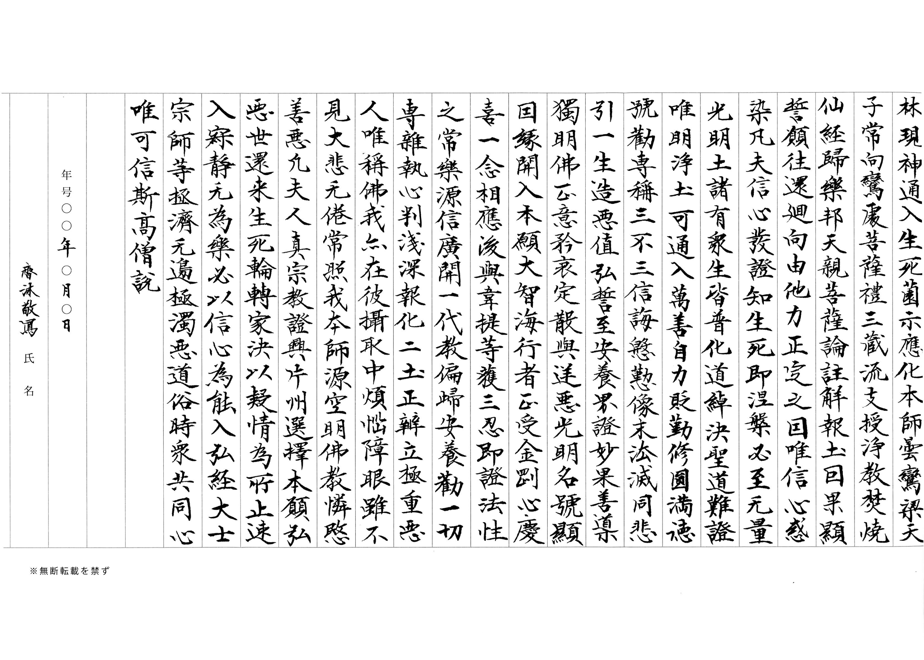 林現神通入生死薗示應化本師曇鸞梁天
子常向鸞處菩薩禮三藏流支授浄教焚焼
仙経歸樂邦天親菩薩論註解報土因果顯
誓願往還廻向由他力正定之因唯信心惑
染凡夫信心發證知生死即涅槃必至无量
光明土諸有衆生皆普化道綽決聖道難證
唯明浄土可通入萬善自力貶勤修圓満徳
號勸専稱三不三信誨慇懃像末法滅同悲
引一生造悪値弘誓至安養界證妙果善導
獨明佛正意矜哀定散與逆悪光明名號顯
因縁開入本願大智海行者正受金剛心慶
喜一念相應後與韋提等獲三忍即證法性
之常樂源信廣開一代教偏歸安養勸一切
専雜執心判浅深報化二土正辨立極重悪
人唯稱佛我亦在彼攝取中煩悩障眼雖不
見大悲无倦常照我本師源空明佛教憐愍
善悪凡夫人真宗教證興片州選擇本願弘
悪世還来生死輪轉家決以疑情為所止速
入寂静无為樂必以信心為能入弘経大士
宗師等極濟无邊極濁悪道俗時衆共同心
唯可信斯高僧説
年号〇〇年〇月〇日
斎沐敬寫 氏名
※無断転載を禁ず